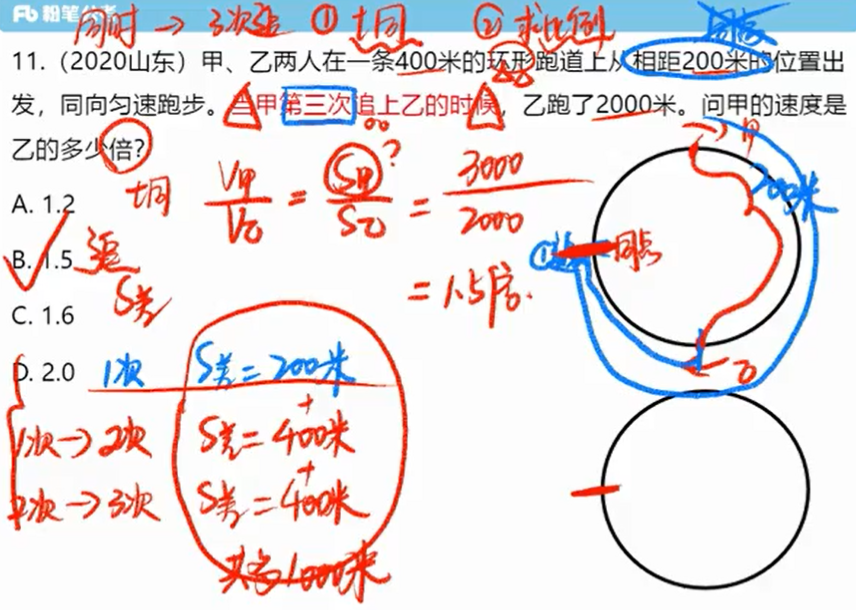 粉笔公考
同时 → 3次追 ① t同 ② 求比例 同点
11.（2020山东）甲、乙两人在一条400米的环形跑道上从相距200米的位置出
发，同向匀速跑步。当甲第三次追上乙的时候，乙跑了2000米。问甲的速度是
乙的多少倍？
t同 V甲/V乙 = S甲/S乙 ? = 3000/2000
= 1.5倍.
A. 1.2
B. 1.5 追
S差
C. 1.6
D. 2.0 1次 S差 = 200米
+
1次 → 2次 S差 = 400米
+
2次 → 3次 S差 = 400米
共多1000米
甲
200米
① 同点
乙